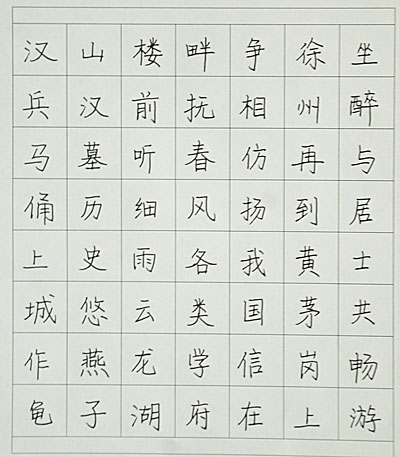 汉兵马俑上城作龟
山汉墓历史悠燕子
楼前听细雨云龙湖
畔抚春风各类学府
争相仿扬我国信在
徐州再到黄茅岗上
坐醉与居士共畅游